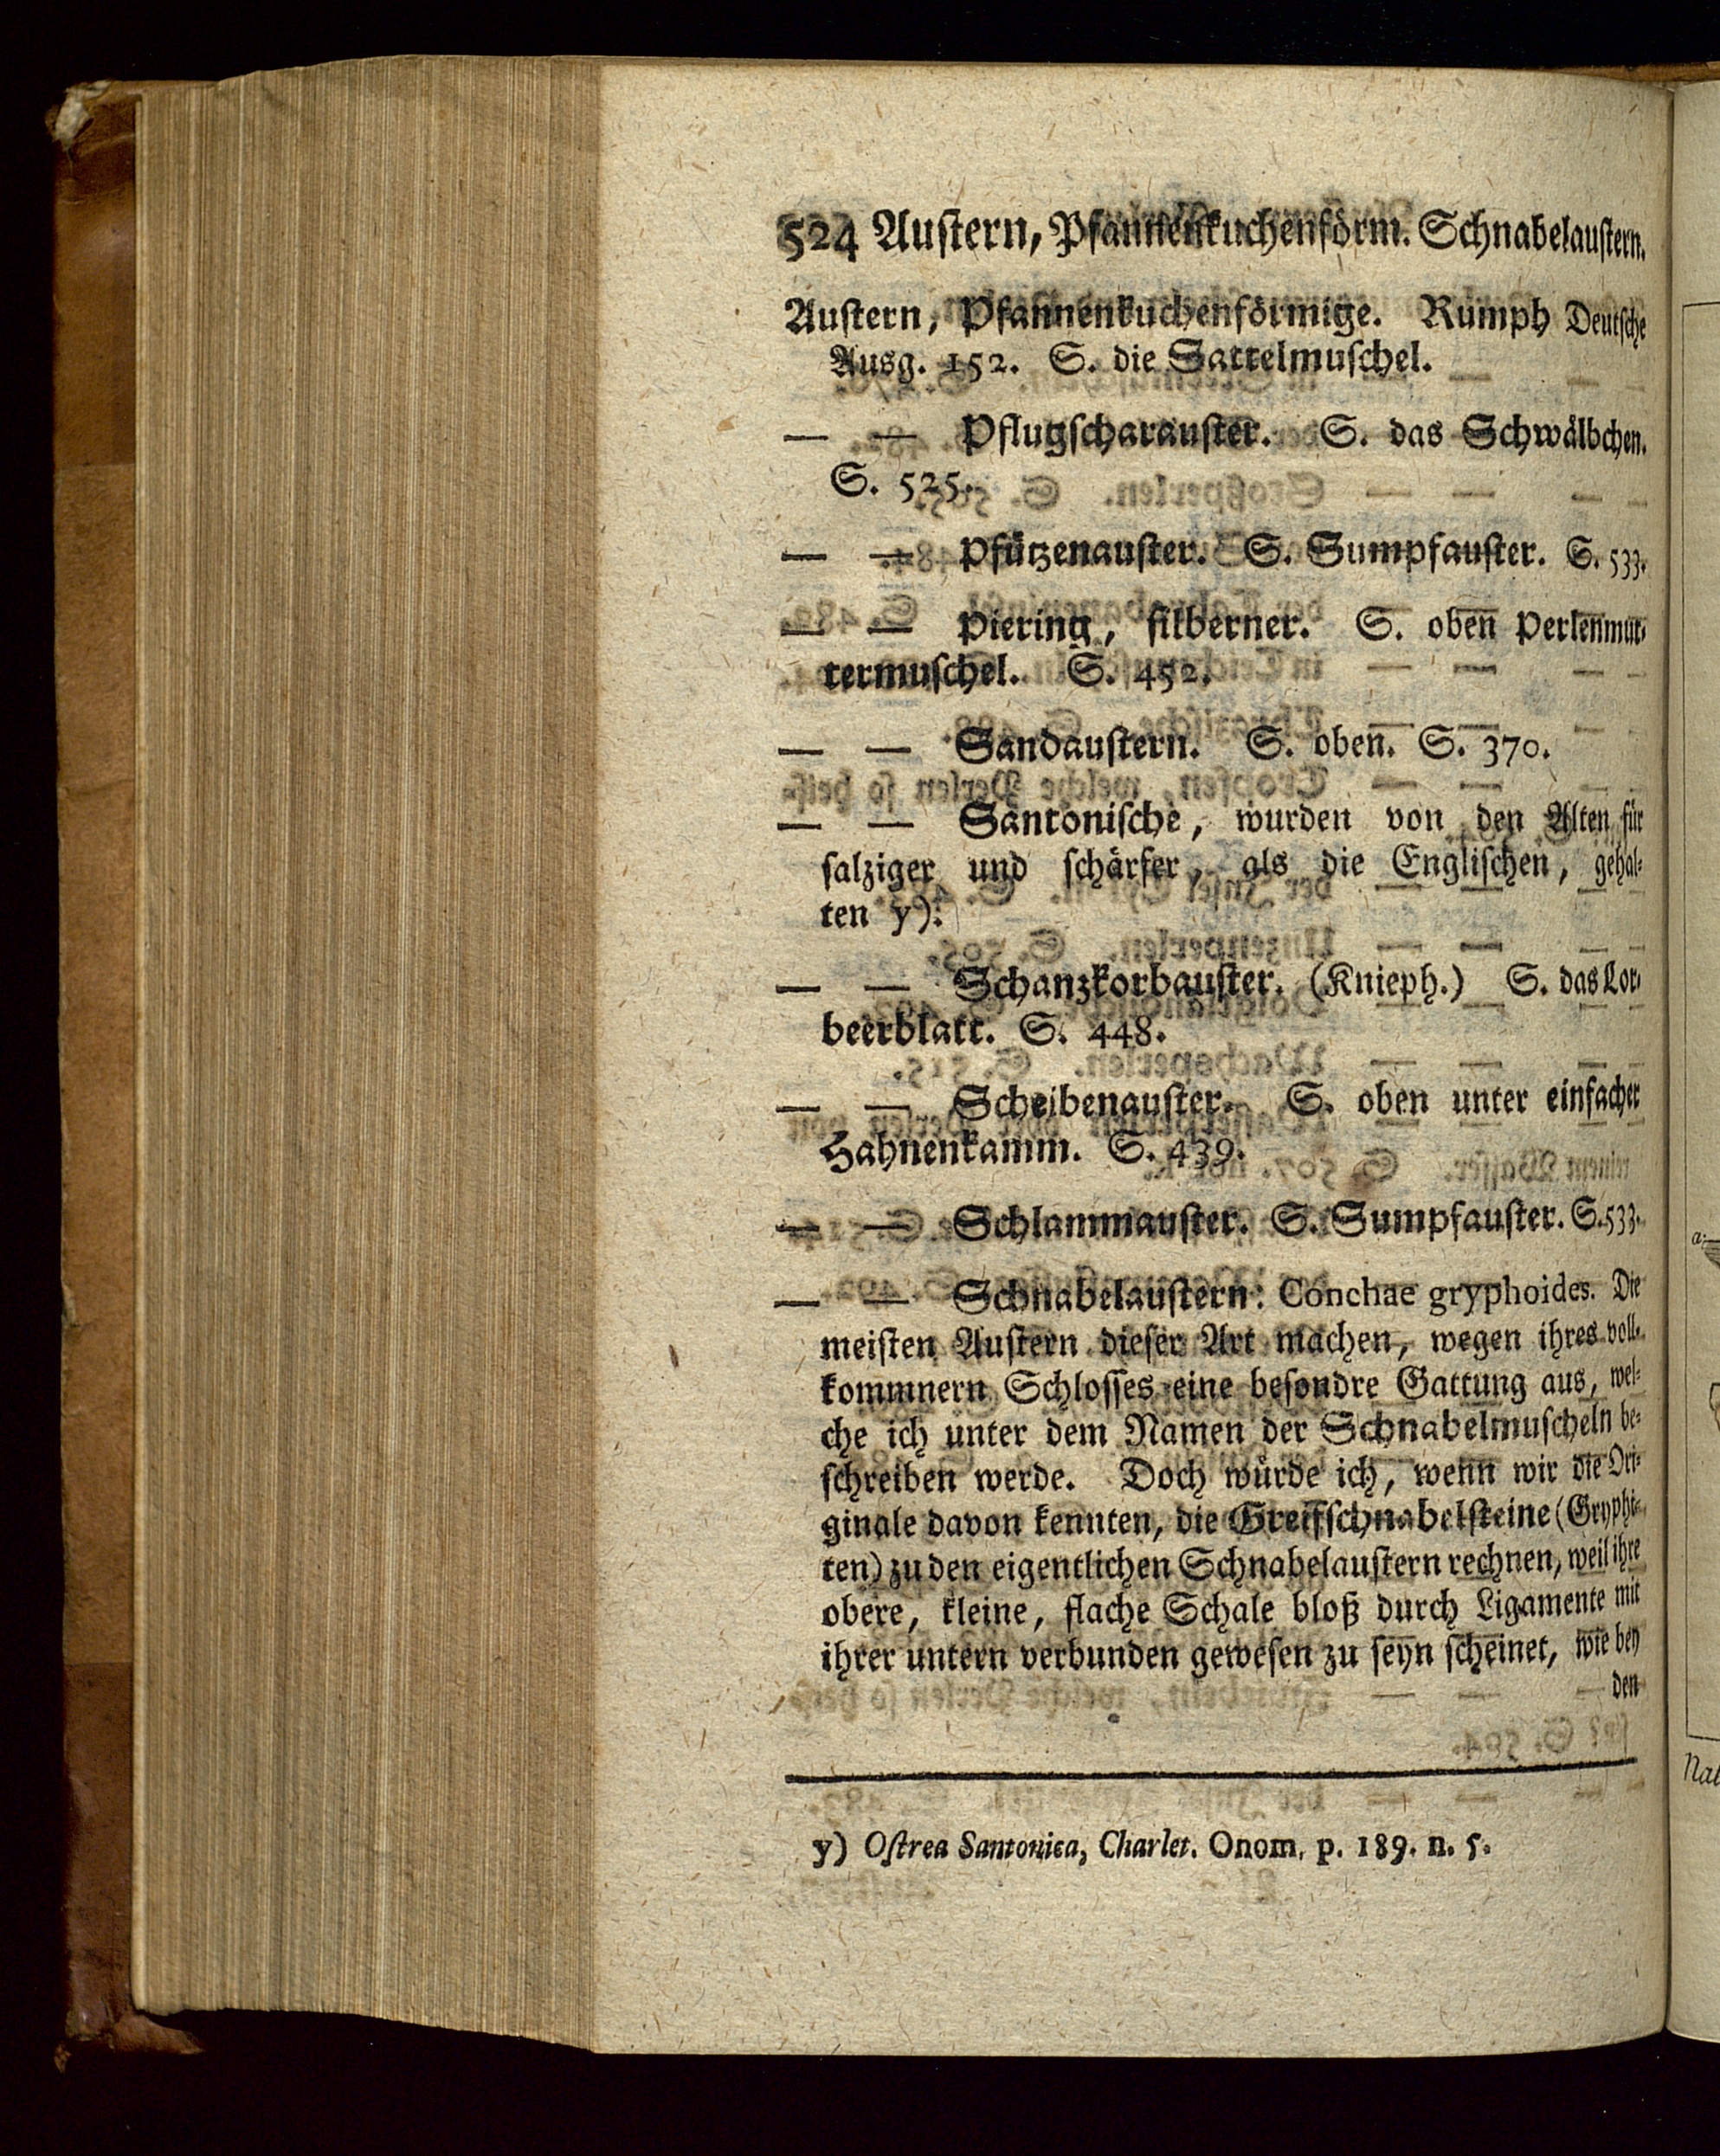 524 Austern, Pfannenkuchenförm. Schnabelaustern.
Austern, Pfannenkuchenförmige. Rumph Deutsche
Ausg. 152. S. die Sattelmuschel.
— — Pflugscharauster. S. das Schwälbchen.
S. 525.
— — Pfützenauster. S. Sumpfauster. S. 533.
— — Piering, silberner. S. oben Perlenmut-
termuschel. S. 452.
— — Sandaustern. S. oben. S. 370.
— — Santonische, wurden von den Alten für
salziger und schärfer, als die Englischen, gehal-
ten y).
— — Schanzkorbauster. (Knieph.) S. das Lor-
beerblatt. S. 448.
— — Scheibenauster. S. oben unter einfacher
Hahnenkamm. S. 439.
— — Schlammauster. S. Sumpfauster. S. 533.
— — Schnabelaustern: Conchae gryphoides. Die
meisten Austern dieser Art machen, wegen ihres voll-
kommnern Schlosses eine besondre Gattung aus, wel-
che ich unter dem Namen der Schnabelmuscheln be-
schreiben werde. Doch würde ich, wenn wir die Ori-
ginale davon kennten, die Greifschnabelsteine (Gryphi-
ten) zu den eigentlichen Schnabelaustern rechnen, weil ihre
obere, kleine, flache Schale bloß durch Ligamente mit
ihrer untern verbunden gewesen zu seyn scheinet, wie bey
den
y) Ostrea Santonica, Charlet. Onom. p. 189. n. 5.
a: